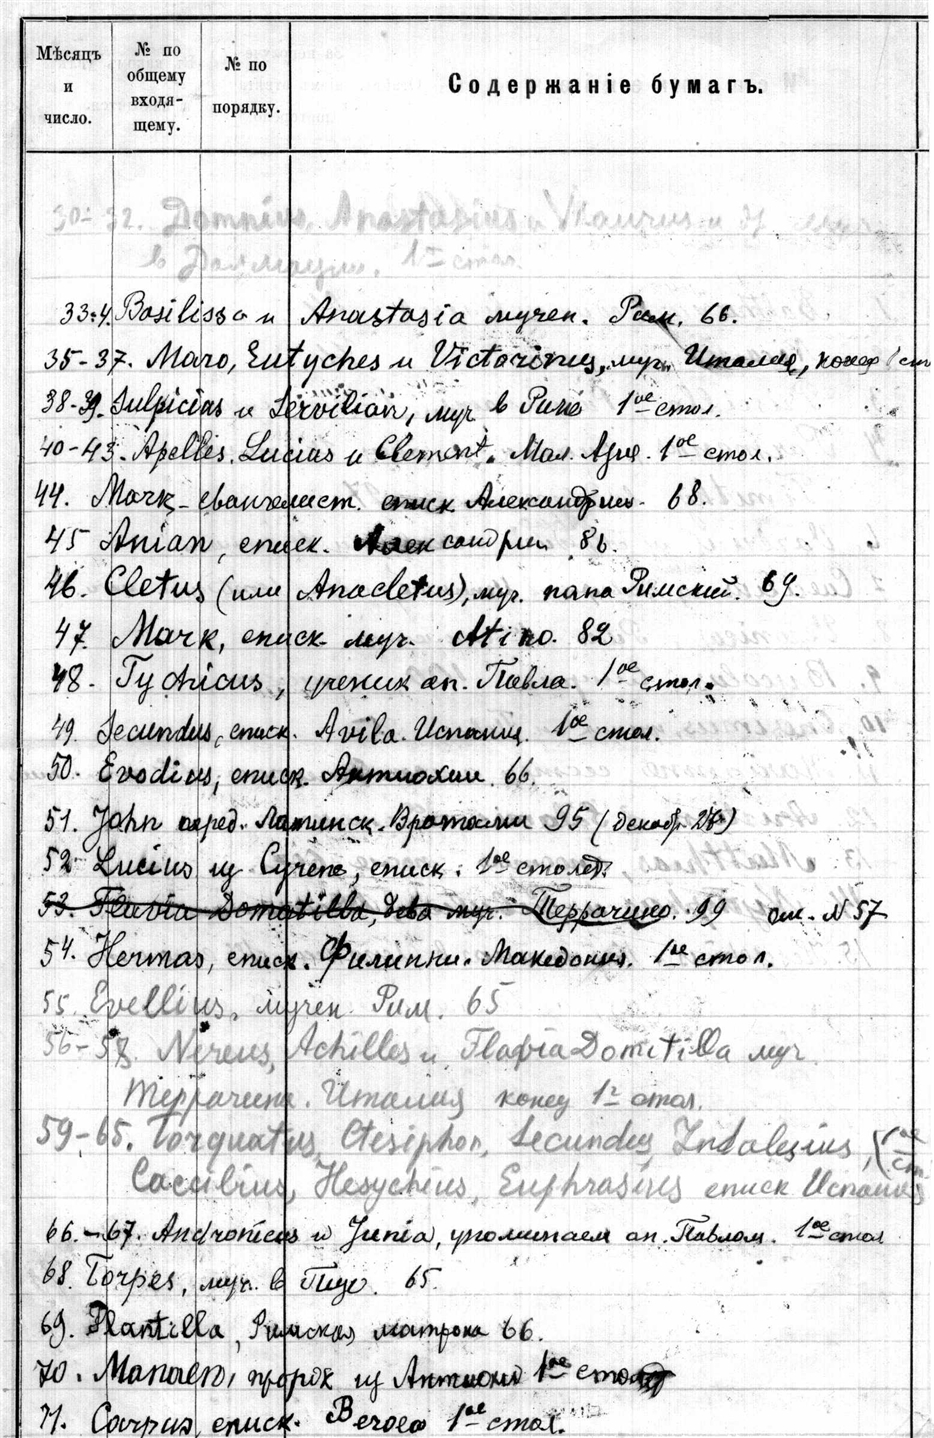 Мѣсяцъ и число.
№ по общему входящему.
№ по порядку.
Содержаніе бумагъ.
30-32. Domnius, Anastasius и Maurus и
в Далмации. 1-е стол.
33-4. Basilissa и Anastasia мучен. Рим. 66.
35-37. Maro, Eutyches и Victorinus, муч. Италия, конец 1 ст
38-39. Sulpicius и Servilian, муч в Риме 1ое стол.
40-43. Apelles, Lucius и Clement. Мал. Азия. 1ое стол.
44. Марк - евангелист. еписк Александрии. 68.
45 Anian, еписк. Александрии 86.
46. Cletus (или Anacletus), муч. папа Римский. 69.
47. Марк, еписк муч. Atino. 82
48. Tychicus, ученик ап. Павла. 1ое стол.
49. Secundus, еписк. Avila. Испания. 1ое стол.
50. Evodius, еписк. Антиохии. 66.
51. John перед. Латинск. Вратами 95 (декабр 27)
52 Lucius из Cyrene, еписк. 1ое столет.
53. Flavia Domatilla, дева муч. Террачино. 99 см. N 57
54. Hermas, еписк. Филиппи. Македония. 1ое стол.
55. Evellius, мучен Рим. 65
56-58. Nereus, Achilles и Flavia Domitilla муч
Террачина. Италия конец 1г стол.
59-65. Torquatus, Ctesiphon, Secundus, Indalesius, (1ое ст
Caecilius, Hesychius, Euphrasius еписк Испания
66.-67. Andronicus и Junia, упоминаем ап. Павлом. 1ое стол
68. Torpes, муч. в Пизе. 65.
69. Plantilla, Римская матрона 66.
70. Manaen, пророк из Антиохи 1ое стол
71. Carpus, еписк. Beroea 1ое стол.